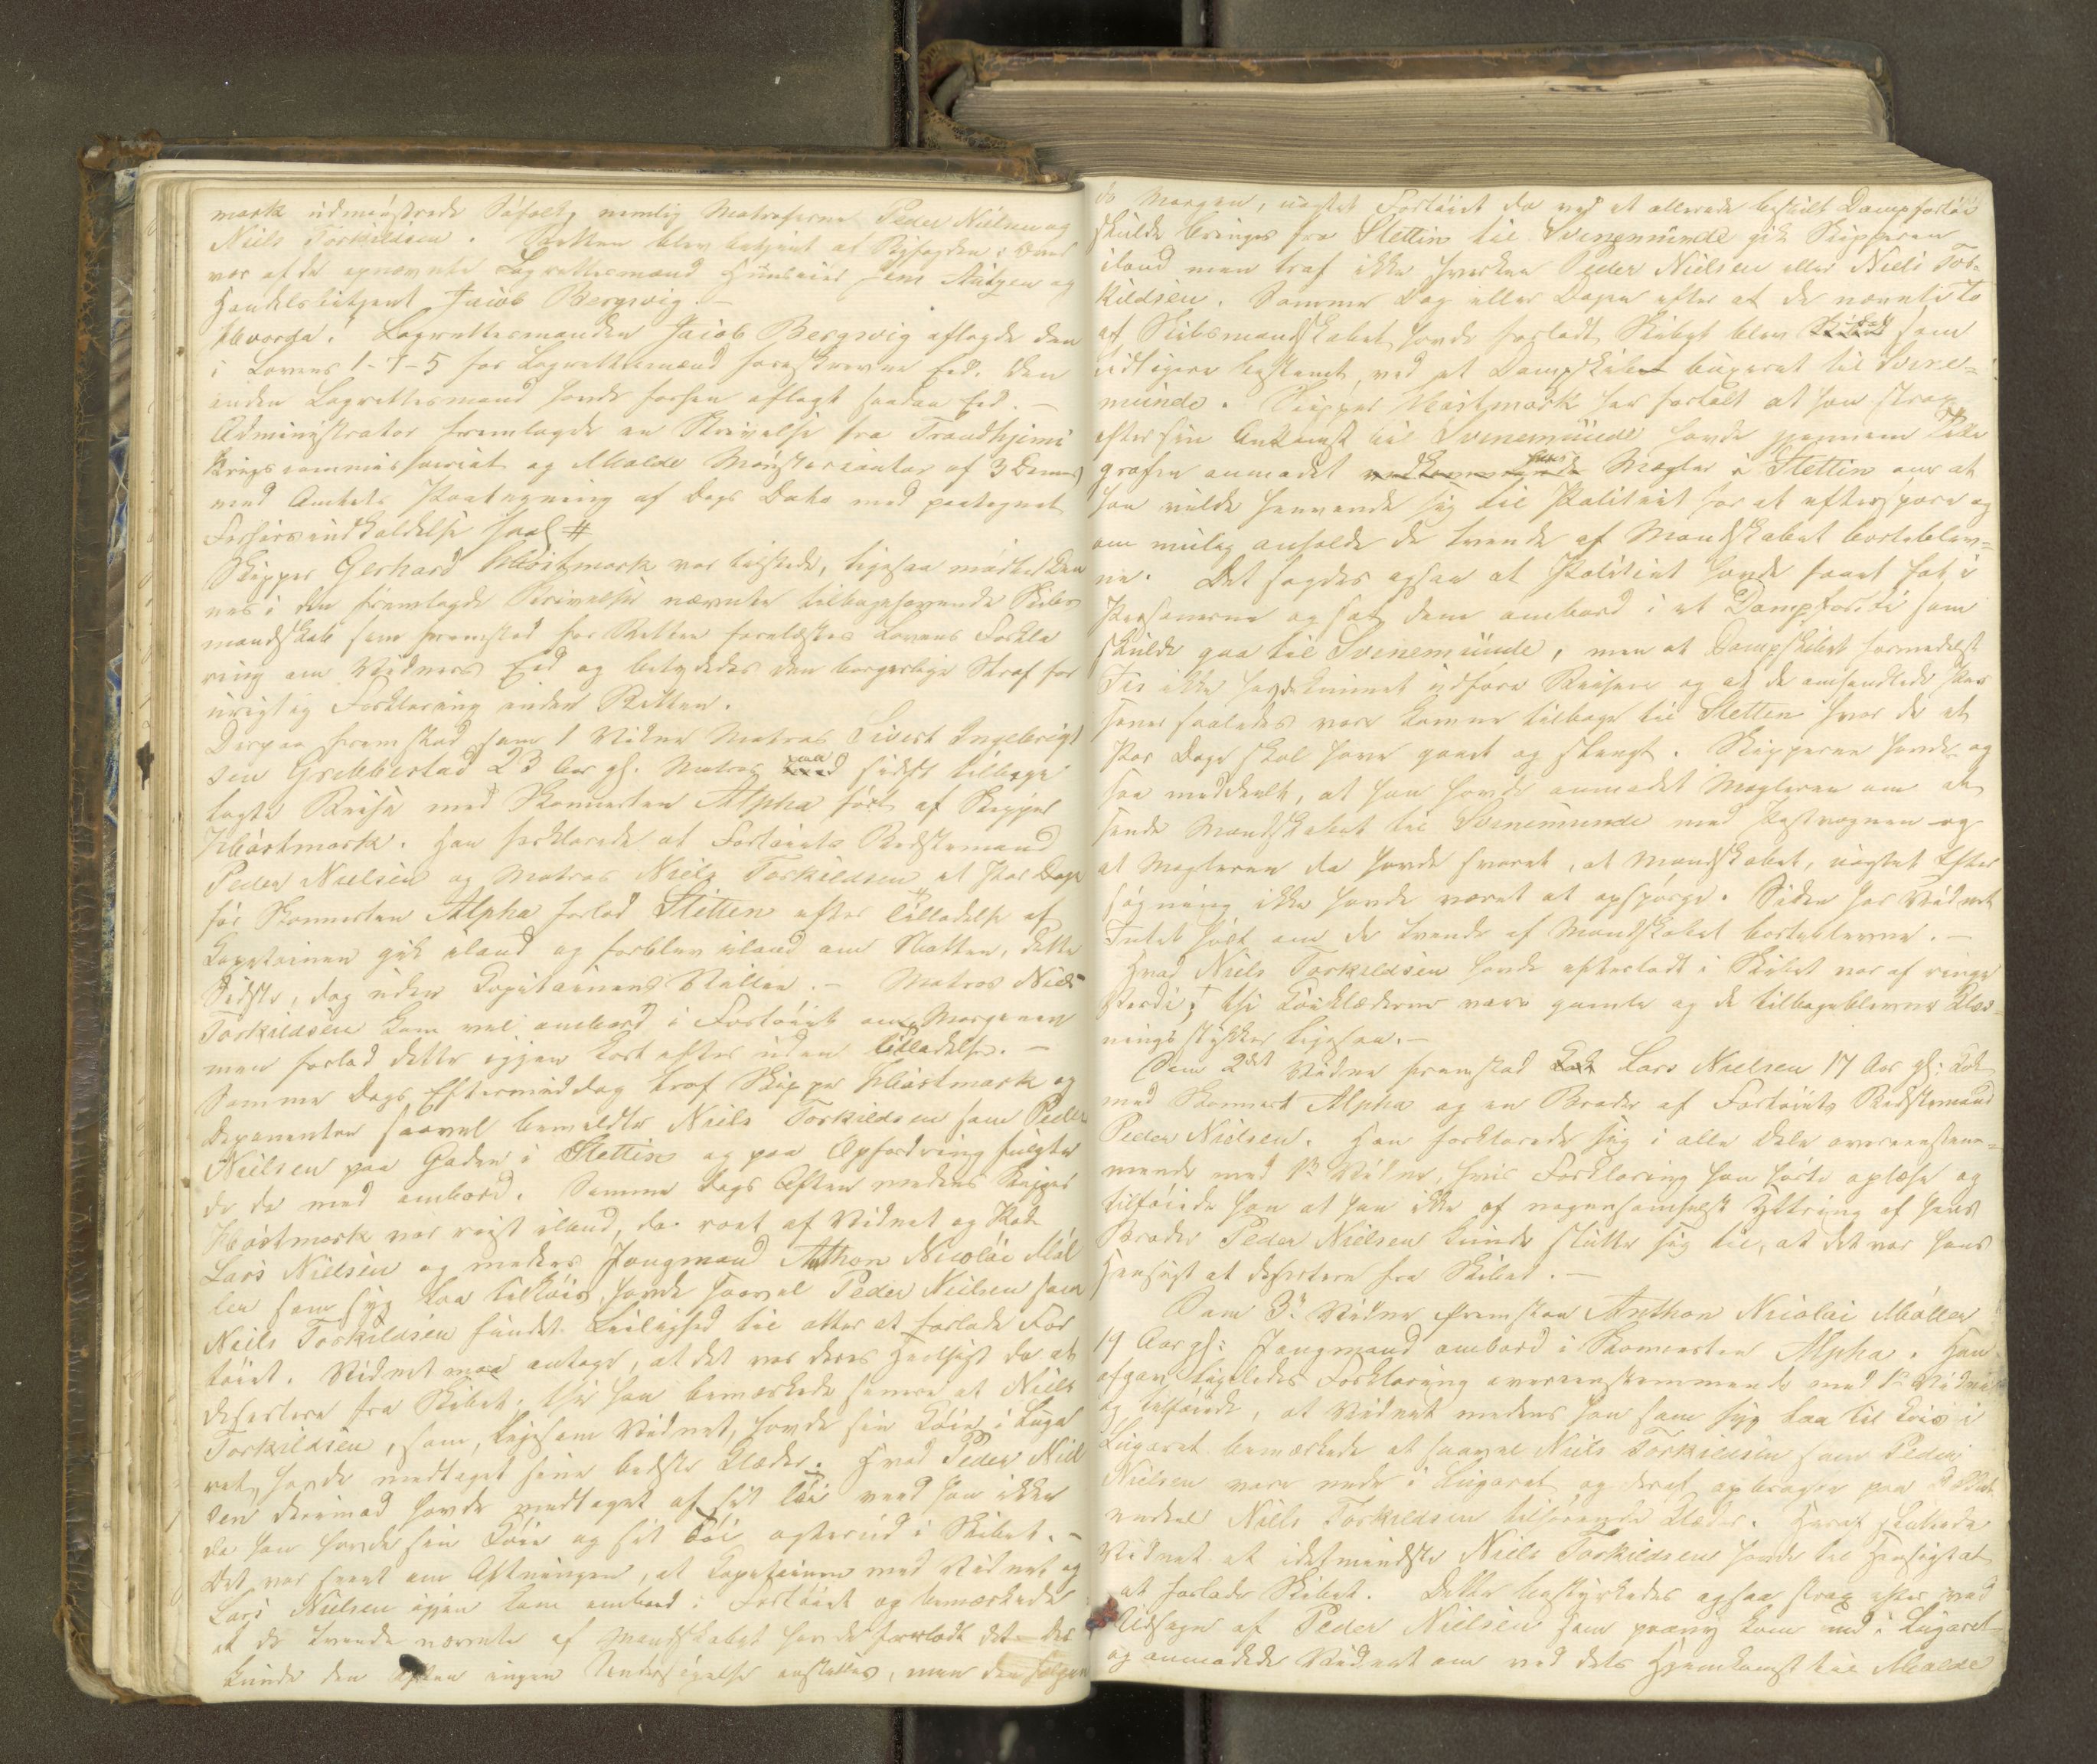 mark udmønstrede Søfolk, nemlig Matroserne Peder Nielsen og
Niels Torkildsen. Retten blev betjent af Byfogden; Der
var af de opnævnte Lagrettesmænd Huuseier Jens
Handelsbetjent Jacob Bergsvig.
Hvorda! Lagrettesmanden Jacob Bergsvig aflagde den
i Lovens 1-7-5 for Lagrettesmænd foreskrevne Eed. Den
anden Lagrettesmand havde forhen aflagt saadan Eed.
Administrator fremlagde en Skrivelse fra Trondhjems
Krigscommissariat og Molde Mønstercontor af 3 Dennes
med Amtets Paategning af Dags Dato med paategnet
Forhørsindkaldelse saal. #
Skipper Gerhard Høistmark var tilstede, ligesaa mødte Den
nes i den fremlagde Skrivelse nævnte tilbagehavende Skibs
mandskab som fremstod for Retten forelæstes Lovens Forkla
ring om Vidners Eed og betydedes den borgerlige Straf for
urigtig Forklaring inden Retten.
Derpaa fremstod som 1 Vidne Matros Sivert Ingebrigt
sen Grebbestad 23 Aar gl. Matros paa sidst tilbage
lagte Reise med Skonnerten Alpha ført af Skipper
Høistmark. Han forklarede at Fartøiets Bedstemand
Peder Nielsen og Matros Niels Torkildsen et Par Dage
før Skonnerten Alpha forlod Stettin efter Tilladelse af
Capitainen gik iland og forblev iland om Natten, dette
Sidste, dog uden Capitainens Villie. - Matros Niels
Torkildsen kom vel ombord i Fartøiet om Morgenen
men forlod dette igjen kort efter uden Tilladelse. -
Samme Dags Eftermiddag traf Skipper Høistmark og
Deponenten saavel bemeldte Niels Torkildsen som Peder
Nielsen paa Gaden i Stettin og paa Opfordring fulgte
de da med ombord. Samme Dags Aften medens Skipper
Høistmark var reist iland, da roet af Vidnet og Kok
Lars Nielsen og medens Jungmand Anthon Nicolai Møl
ler som syg laa tilkøis, havde saavel Peder Nielsen som
Niels Torkildsen fundet Leilighed til atter at forlade Far
tøiet. Vidnet maa antage, at det var deres Hensigt da at
desertere fra Skibet, thi han bemærkede senere at Niels
Torkildsen, som, ligesom Vidnet, havde sin Køie i Luga
ret, havde medtaget sine bedste Klæder. Hvad Peder Niel
sen derimod havde medtaget af sit Tøi veed han ikke
da han havde sin Køie og sit Tøi agterud i Skibet. -
Det var seent om Aftningen, at Capitainen med Vidnet og
Lars Nielsen igjen kom ombord i Fartøiet og bemærkede
at de tvende nævnte af Mandskabet havde forladt det. Der
kunde den Aften ingen Undersøgelse anstilles, men den følgen
de Morgen, uagtet Fartøiet da ved et allerede bestilt Dampfartøi
skulde bringes fra Stettin til Svinemünde gik Skipperen
iland men traf ikke hverken Peder Nielsen eller Niels Tor-
kildsen. Samme Dag eller Dagen efter at de nævnte to
af Skibsmandskabet havde forladt Skibet blev som
tidligere bestemt, ved et Dampskib bugseret til Svine-
münde. Skipper Høistmark har fortalt at han strax
efter sin Ankomst til Svinemünde havde gjennem Tele
grafen anmodet hans Mægler i Stettin om at
han vilde henvende sig til Politiet for at efterspore og
om mulig anholde de tvende af Mandskabet borteblev-
ne. Det sagdes ogsaa at Politiet havde faaet fat i
Personerne og sat dem ombord i et Dampfartøi som
skulde gaa til Svinemünde, men at Dampskibet formedelst
Iis ikke havde kunnet udføre Reisen og at de omhandlede Per
soner saaledes vare komne tilbage til Stettin hvor de et
Par Dage skal have gaaet og slængt. Skipperen havde og
saa meddeelt, at han havde anmodet Mægleren om at
sende Mandskabet til Svinemünde med Postvognen og
at Mægleren da havde svaret, at Mandskabet, uagtet Efter
søgning ikke havde været at opspørge. Siden har Vidnet
Intet hørt om de tvende af Mandskabet borteblevne. -
Hvad Niels Torkildsen havde efterladt i Skibet var af ringe
Værdi; thi Køieklæderne vare gamle og de tilbageblevne Klæd-
ningsstykker ligesaa. -
Som 2det Vidne fremstod Lars Nielsen 17 Aar gl: Kok
med Skonnert Alpha og en Broder af Fartøiets Bedstemand
Peder Nielsen. Han forklarede sig i alle Dele overeenstem-
mende med 1ste Vidne, hvis Forklaring han hørte oplæse og
tilføiede han at han ikke af nogensomhelst Yttring af hans
Broder Peder Nielsen kunde slutte sig til, at det var hans
Hensigt at desertere fra Skibet. -
Som 3die Vidne fremstod Anthon Nicolai Møller
19 Aar gl: Jungmand ombord i Skonnerten Alpha. Han
afgav ligeledes Forklaring overeenstemmende med 1ste Vidne
og tilføiede, at Vidnet medens han som syg laa til Køis i
Lugaret bemærkede at saavel Niels Torkildsen som Peder
Nielsen vare nede i Lugaret og deraf opbragte
Niels Torkildsen tilhørende Klæder. Heraf sluttede
Vidnet at idetmindste Niels Torkildsen havde til Hensigt at
at forlade Skibet. Dette bestyrkedes ogsaa strax efter ved
Udsagn af Peder Nielsen som paany kom ned i Lugaret
og anmodede Vidnet om ved dets Hjemkomst til Molde